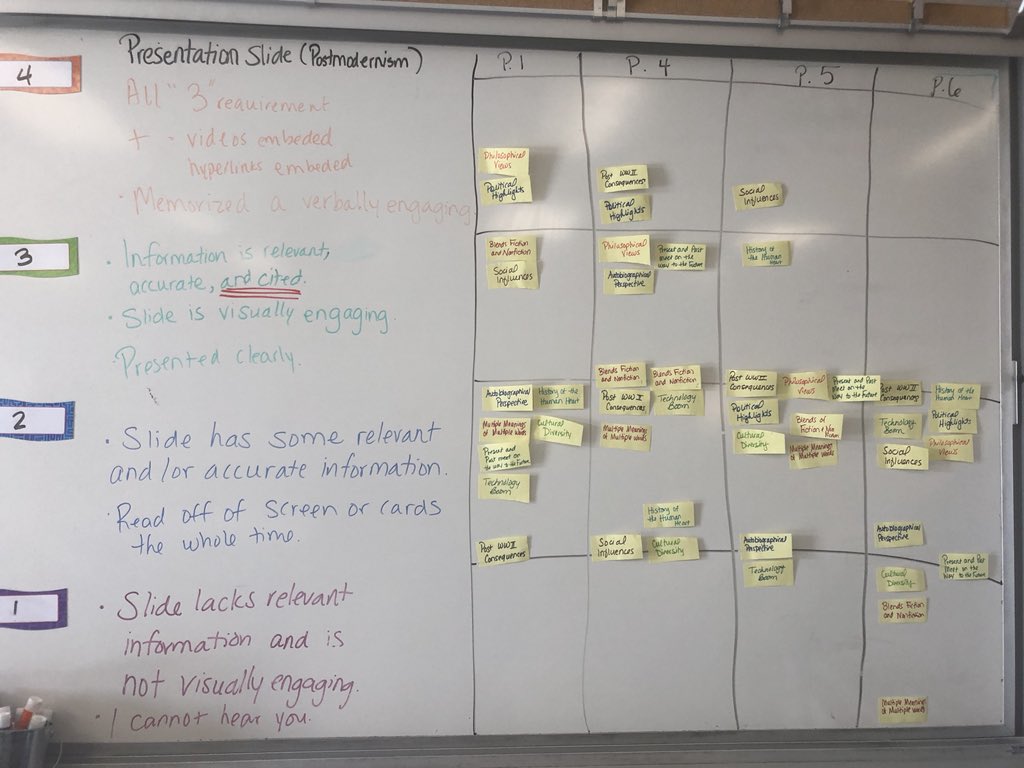 Presentation Slide (Postmodernism)
P.1
P. 4
P. 5
P.6
4
All "3" requirement
+ - videos embeded
hyperlinks embeded
• Memorized a verbally engaging
Philosophical
Views
Political
Highlights
Post WWII
Consequences
Political
Highlights
Social
Influences
3
• Information is relevant,
accurate, and cited.
• Slide is visually engaging.
• Presented clearly.
Blends Fiction
and Nonfiction
Social
Influences
Philosophical
Views
Present and Past
meet on the
Way to the Future
Autobiographical
Perspective
History of
the Human
Heart
2
• Slide has some relevant
and/or accurate information.
• Read off of screen or cards
the whole time.
Autobiographical
Perspective
History of the
Human Heart
Multiple Meanings
of Multiple Words
Cultural
Diversity
Present and
Past meet on
the Way to the Future
Technology
Boom
Post WWII
Consequences
Blends Fiction
and Nonfiction
Blends Fiction
and Nonfiction
Post WWII
Consequences
Technology
Boom
Multiple Meanings
of Multiple Words
History of
the Human
Heart
Social
Influences
Cultural
Diversity
Post WWII
Consequences
Philosophical
Views
Present and Past
Meet on the
Way to the Future
Political
Highlights
Blends of
Fiction & Non
Fiction
Cultural
Diversity
Multiple Meanings
of Multiple Words
Autobiographical
Perspective
Technology
Boom
Post WWII
Consequences
History of the
Human Heart
Technology
Boom
Political
Highlights
Social
Influences
Philosophical
Views
Autobiographical
Perspective
Present and Past
Meet on the
Way to the Future
Cultural
Diversity
Blends Fiction
and Nonfiction
Multiple Meanings
of Multiple Words
1
• Slide lacks relevant
information and is
not visually engaging.
• I cannot hear you.